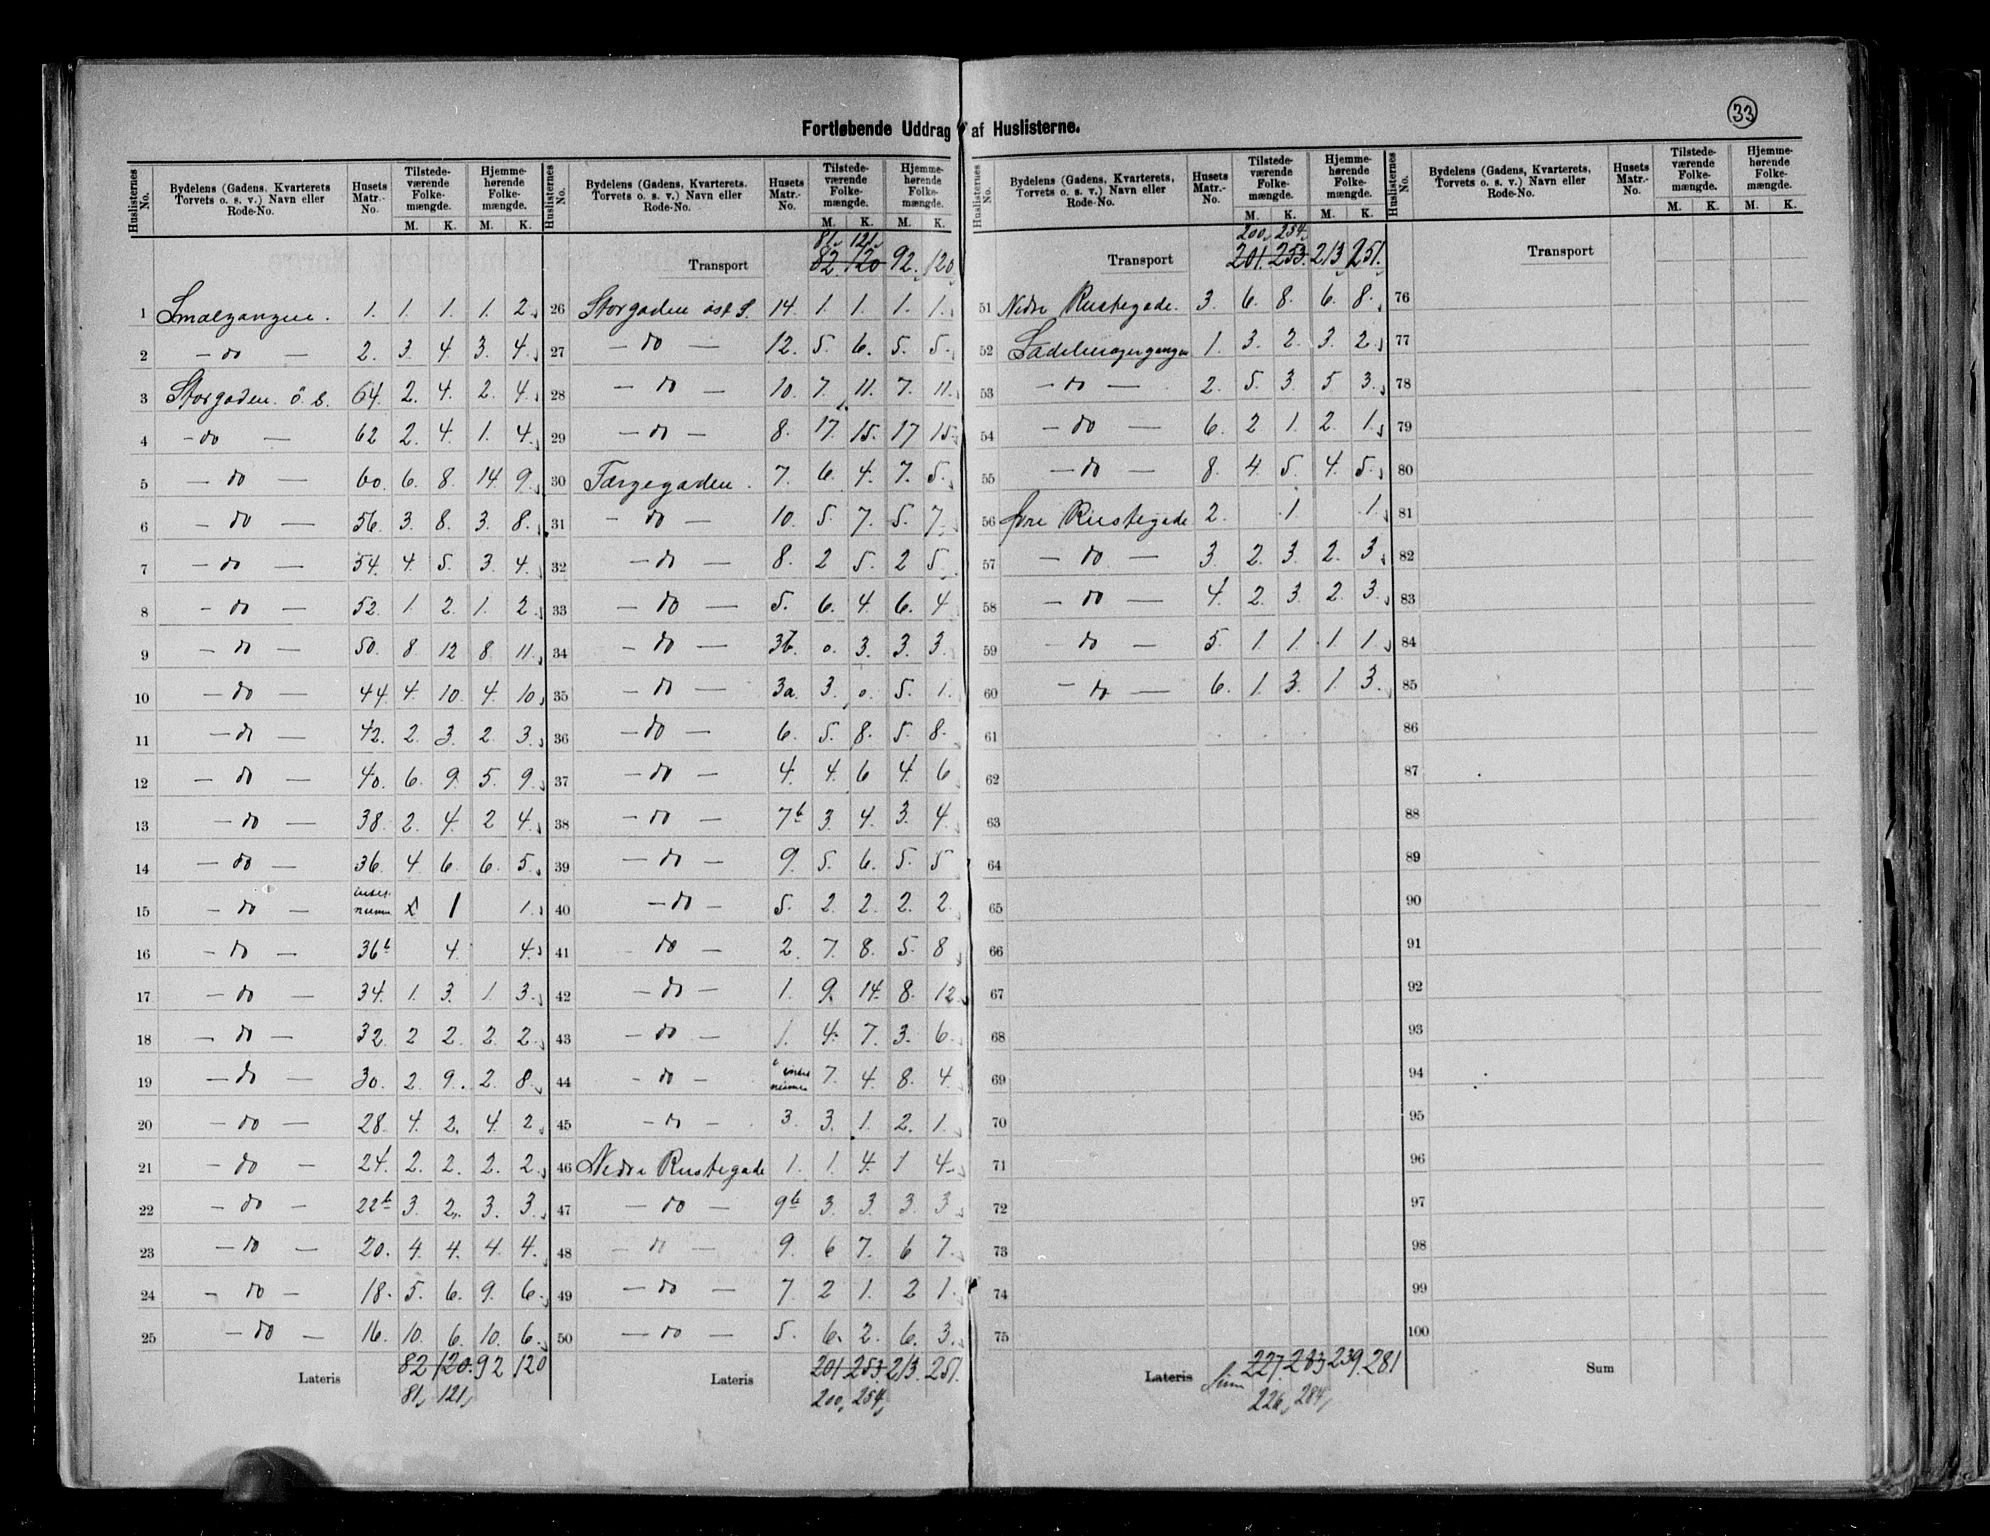 33
Fortløbende Uddrag af Huslisterne.
Huslisternes No. Bydelens (Gadens, Kvarterets Torvets o. s. v.) Navn eller Rode-No. Husets Matr.-No. Tilstedeværende Folkemængde. M. K. Hjemmehørende Folkemængde. M. K.
1 Smalgangen. 1. 1. 1. 1. 2.
2 — do — 2. 3. 4. 3. 4.
3 Storgaden ö. s. 64. 2. 4. 2. 4.
4 — do — 62 2. 4. 1. 4.
5 — do — 60. 6. 8. 14. 9.
6 — do — 56. 3. 8. 3. 8.
7 — do — 54. 4. 5. 3. 4.
8 — do — 52. 1. 2. 1. 2.
9 — do — 50. 8 12 8. 11.
10 — do — 44. 4. 10. 4. 10.
11 — do — 42. 2. 3. 2. 3.
12 — do — 40. 6. 9. 5. 9.
13 — do — 38. 2. 4. 2 4.
14 — do — 36. 4 6 6. 5.
15 — do — 1 1.
16 — do — 36b 4. 4.
17 — do — 34. 1. 3. 1. 3.
18 — do — 32. 2 2. 2. 2.
19 — do — 30. 2. 9. 2. 8.
20 — do — 28. 4. 2. 4. 2.
21 — do — 24. 2. 2. 2. 2.
22 — do — 22b 3. 2. 3. 3.
23 — do — 20. 4. 4. 4. 4.
24 — do — 18. 5. 6. 9. 6.
25 — do — 16. 10. 6. 10. 6.
Lateris 82 120. 92 120
81, 121,
81, 121,
Transport 82. 120 92. 120.
26 Storgaden øst S. 14. 1. 1. 1. 1.
27 — do — 12. 5. 6. 5. 5.
28 — do — 10. 7. 11. 7. 11.
29 — do — 8. 17. 15. 17 15.
30 Færgegaden. 7. 6. 4. 7. 5.
31 — do — 10. 5. 7. 5. 7.
32 — do — 8. 2 5. 2 5.
33 — do — 5. 6. 4. 6. 4
34 — do — 3b. 0. 3. 3. 3.
35 — do — 3a. 3. 0. 5. 1.
36 — do — 6. 5. 8. 5. 8.
37 — do — 4. 4. 6 4. 6
38 — do — 7b 3. 4. 3. 4
39 — do — 9. 5. 6. 5. 5
40 — do — 5. 2. 2. 2. 2.
41 do — 2. 7. 8. 5. 8
42 — do — 1. 9. 14. 8. 12.
43 — do — 1. 4. 7. 3. 6.
44 — do — 7. 4. 8. 4.
45 — do — 3. 3. 1. 2. 1.
46 Nedre Rustegade 1. 1. 4. 1 4.
47 — do — 9b 3. 3. 3. 3
48 — do — 9. 6 7. 6 7.
49 — do — 7. 2 1. 2 1.
50 — do — 5. 6. 2. 6. 3.
Lateris 201 253. 213. 251.
200, 254,
Huslisternes No. Bydelens (Gadens, Kvarterets, Torvets o. s. v.) Navn eller Rode-No. Husets Matr.-No. Tilstedeværende Folkemængde. M. K. Hjemmehørende Folkemængde. M. K.
200, 254,
Transport 201. 253. 213. 251.
51 Nedre Rustegade. 3. 6. 8. 6. 8.
52 Sadelmagergangen 1. 3. 2. 3. 2.
53 — do — 2. 5. 3. 5 3.
54 — do — 6. 2 1. 2 1.
55 — do — 8. 4. 5. 4. 5.
56 Øvre Rustegade 2. 1 1.
57 — do — 3. 2. 3. 2. 3.
58 — do — 4. 2. 3. 2. 3.
59 — do — 5. 1. 1. 1. 1.
60 — do — 6. 1. 3. 1. 3.
61
62
63
64
65
66
67
68
69
70
71
72
73
74
75
Lateris Sum 227. 283 239. 281
226, 284,
Transport
76
77
78
79
80
81
82
83
84
85
86
87
88
89
90
91
92
93
94
95
96
97
98
99
100
Sum